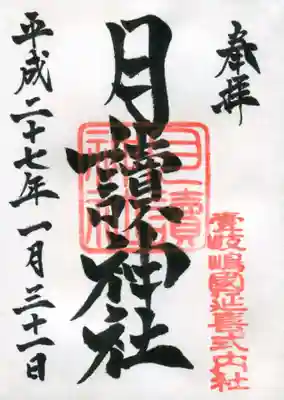 奉拝
壹岐嶋國延喜式内社
月讀神社
月讀
神社
平成二十七年一月三十一日